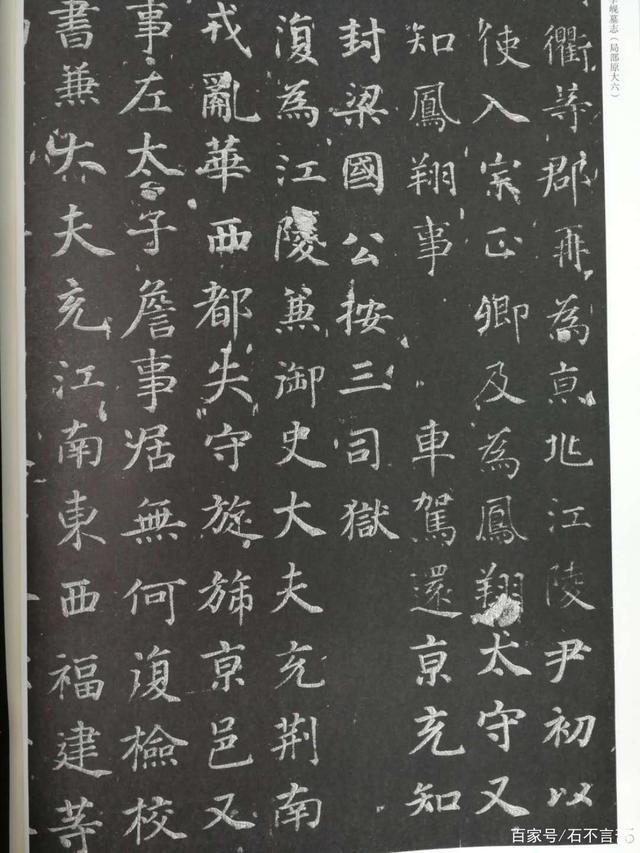 岘墓志（局部原大六）
衢等郡再為京兆江陵尹初以
使入宗正卿及為鳳翔太守又
知鳳翔事 車駕還京充知
封梁國公按三司獄
復為江陵兼御史大夫充荆南
戎亂華西都失守旋旆京邑又
事左太子詹事居無何復檢校
書兼大夫充江南東西福建等
百家号/石不言